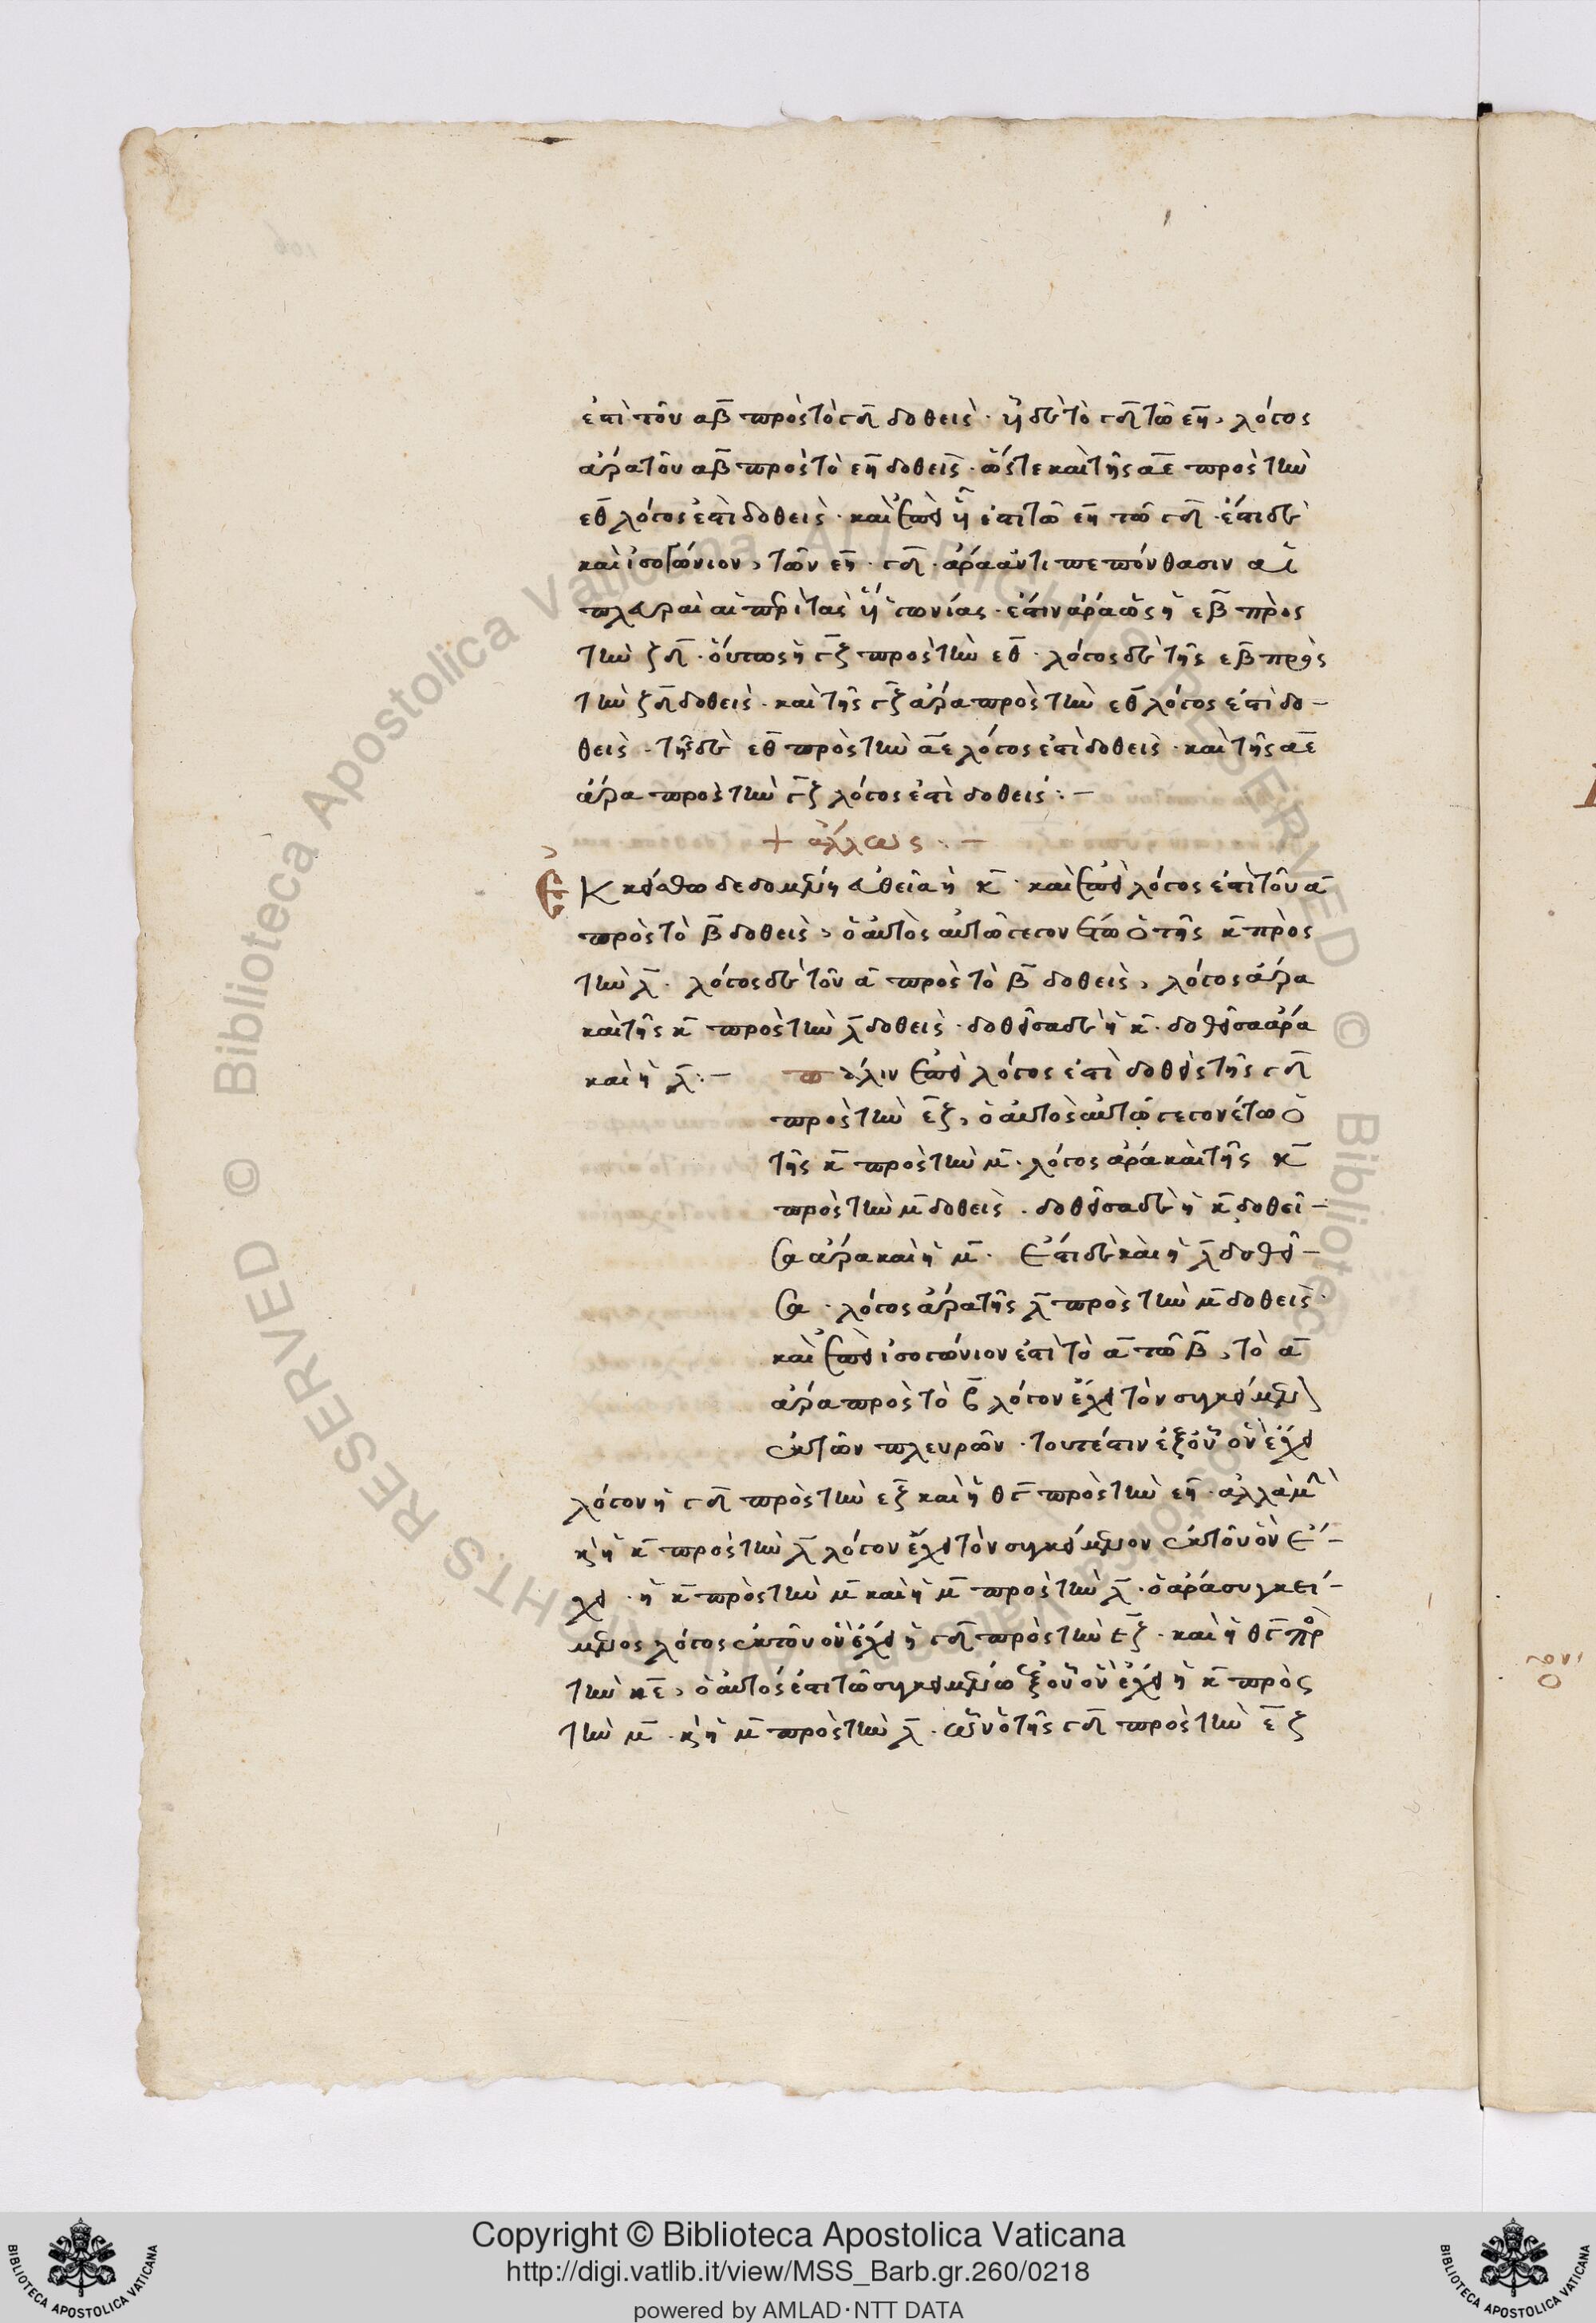 ἐστὶ τοῦ αβ πρὸς τὸ γη δοθεὶς · ἴσον δὲ τὸ γη τῶ εη, λόγος
ἄρα τοῦ αβ πρὸς τὸ εη δοθεὶς · ὥστε καὶ τῆς αε πρὸς τὴν
εθ λόγος ἐστὶ δοθεὶς · καὶ ἐπεὶ ἴσον ἐστὶ τὸ εη τῶ γη · ἔστι δὲ
καὶ ἰσογώνιον, τῶν εη · γη · ἄρα ἀντιπεπόνθασιν αἱ
πλευραὶ αἱ περὶ τὰς ἴσας γωνίας · ἔστιν ἄρα ὡς ἡ εβ πρὸς
τὴν ζη · οὕτως ἡ γζ πρὸς τὴν εθ · λόγος δὲ τῆς εβ πρὸς
τὴν ζη δοθεὶς · καὶ τῆς γζ ἄρα πρὸς τὴν εθ λόγος ἐστὶ δο-
θεὶς · τῆς δὲ εθ πρὸς τὴν αε λόγος ἐστὶ δοθεὶς · καὶ τῆς αε
ἄρα πρὸς τὴν γζ λόγος ἐστὶ δοθεὶς :-
+ ἄλλως :-
Ἐκκείσθω δεδομένη εὐθεῖα ἡ κ · καὶ ἐπεὶ λόγος ἐστὶ τοῦ α
πρὸς τὸ β δοθεὶς, ὁ αὐτὸς αὐτῶ γεγονέτω ὁ τῆς κ πρὸς
τὴν λ · λόγος δὲ τοῦ α πρὸς τὸ β δοθεὶς, λόγος ἄρα
καὶ τῆς κ πρὸς τὴν λ δοθεὶς · δοθεῖσα δὲ ἡ κ · δοθεῖσα ἄρα
καὶ ἡ λ :- πάλιν ἐπεὶ λόγος ἐστὶ δοθεὶς τῆς γη
πρὸς τὴν εζ, ὁ αὐτὸς αὐτῶ γεγονέτω ὁ
τῆς κ πρὸς τὴν μ · λόγος ἄρα καὶ τῆς κ
πρὸς τὴν μ δοθεὶς · δοθεῖσα δὲ ἡ κ δοθεῖ-
σα ἄρα καὶ ἡ μ · ἔστι δὲ καὶ ἡ λ δοθεῖ-
σα · λόγος ἄρα τῆς λ πρὸς τὴν μ δοθεὶς ·
καὶ ἐπεὶ ἰσογώνιον ἐστὶ τὸ α τῶ β, τὸ α
ἄρα πρὸς τὸ β λόγον ἔχει τὸν συγκείμενον
ἐκ τῶν πλευρῶν · τουτέστιν ἐξ οὗ ὃν ἔχει
λόγον ἡ γη πρὸς τὴν εζ καὶ ἡ θγ πρὸς τὴν εη · ἀλλὰ μὴν
καὶ ἡ κ πρὸς τὴν λ λόγον ἔχει τὸν συγκείμενον ἐκ τοῦ ὃν ἔ-
χει · ἡ κ πρὸς τὴν μ καὶ ἡ μ πρὸς τὴν λ · ὁ ἄρα συγκεί-
μενος λόγος ἐκ τοῦ ὃν ἔχει ἡ γη πρὸς τὴν εζ · καὶ ἡ θγ πρὸς
τὴν κε, ὁ αὐτός ἐστι τῶ συγκειμένω ἐξ οὗ ὃν ἔχει ἡ κ πρὸς
τὴν μ · καὶ ἡ μ πρὸς τὴν λ · ὧν ὁ τῆς γη πρὸς τὴν εζ
Copyright © Biblioteca Apostolica Vaticana
http://digi.vatlib.it/view/MSS_Barb.gr.260/0218
powered by AMLAD·NTT DATA